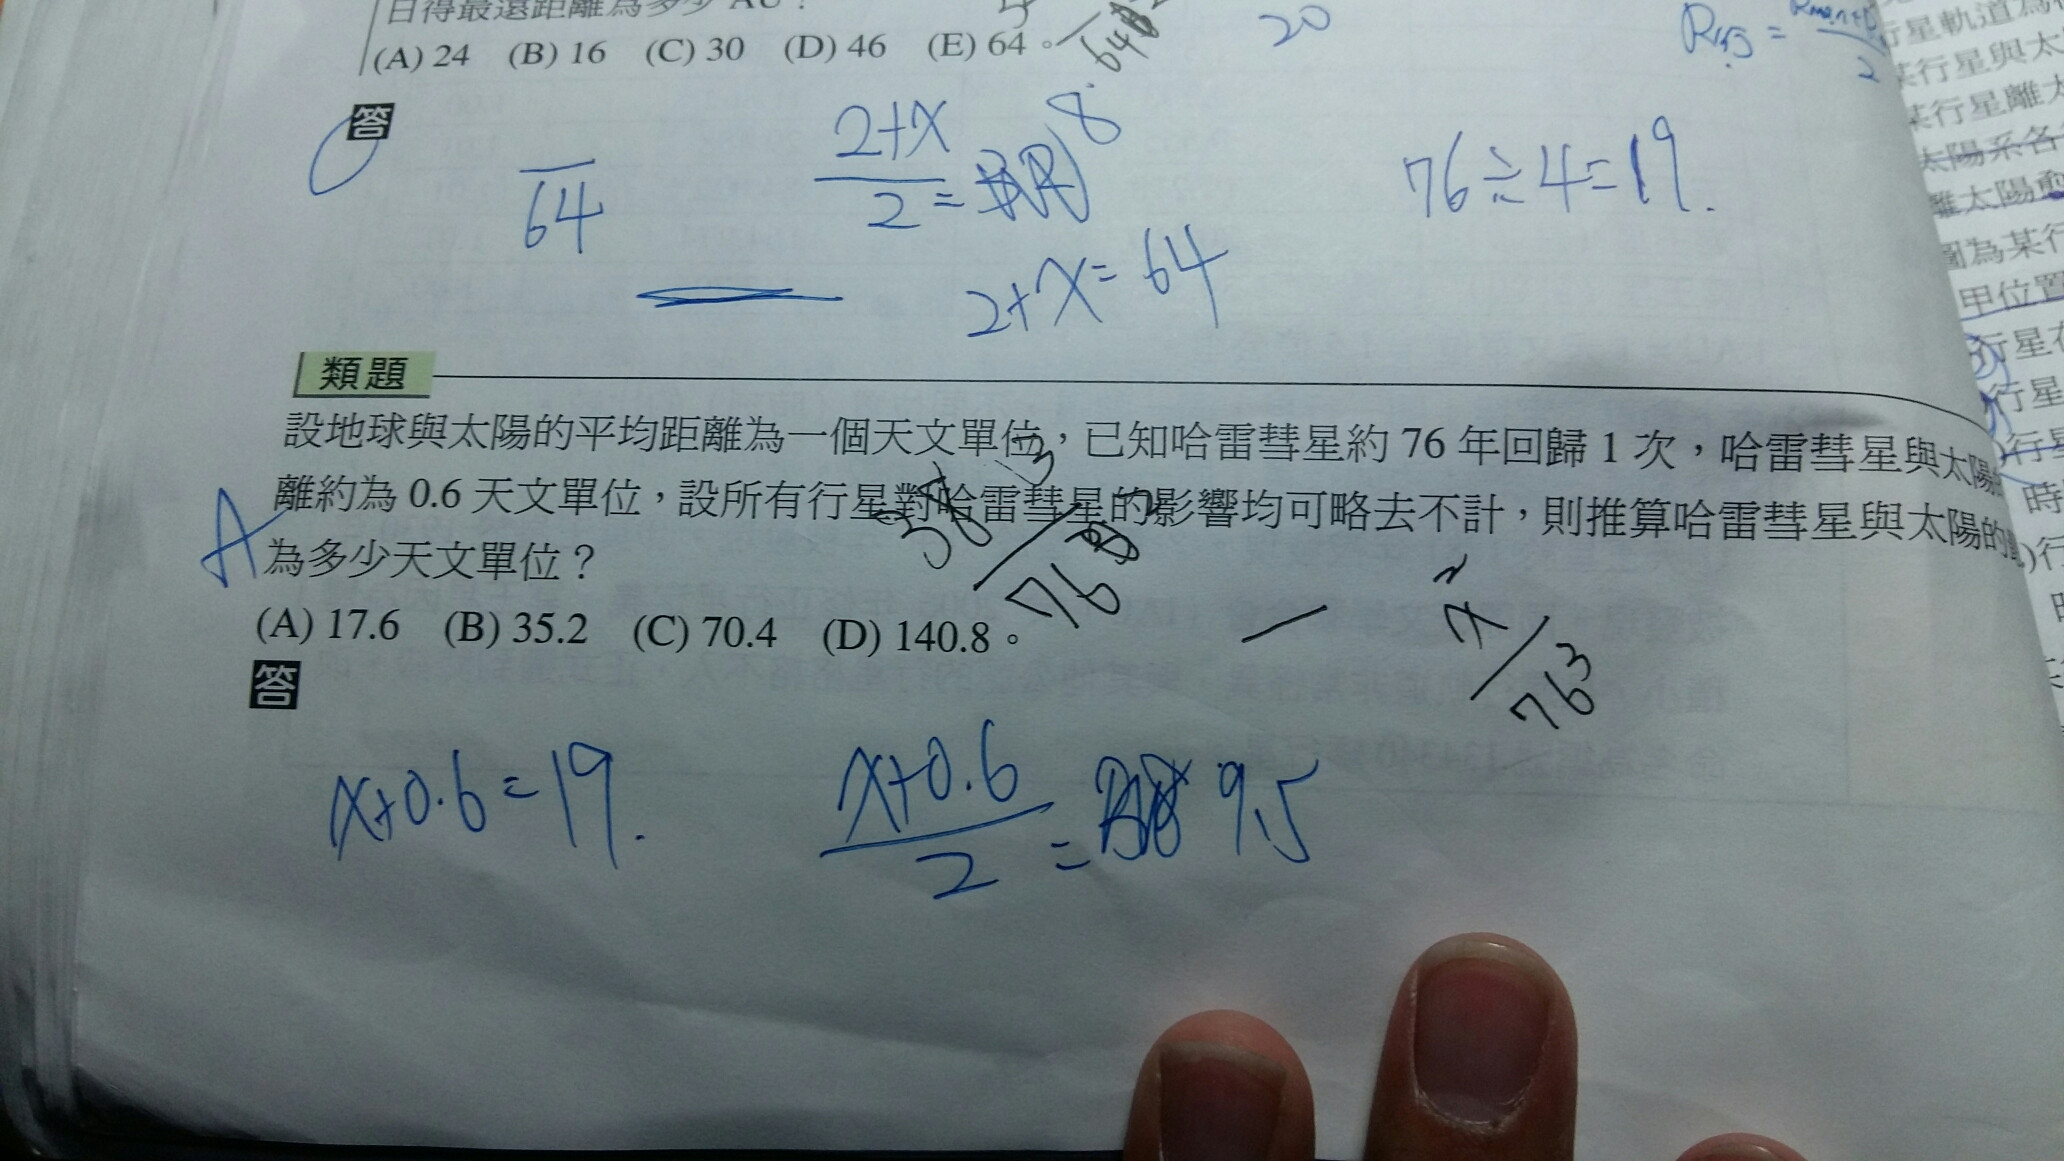 日得最遠距離為多少 AU？
(A) 24 (B) 16 (C) 30 (D) 46 (E) 64。
20
答
64
2+x
2 =
8
2+x=64
76÷4=19.
類題
設地球與太陽的平均距離為一個天文單位，已知哈雷彗星約 76 年回歸 1 次，哈雷彗星與太陽
離約為 0.6 天文單位，設所有行星對哈雷彗星的影響均可略去不計，則推算哈雷彗星與太陽的
A
為多少天文單位？
(A) 17.6 (B) 35.2 (C) 70.4 (D) 140.8。
763
答
x+0.6=19.
x+0.6
2 = 9.5
行星軌道為
某行星與太
某行星離太
太陽系各
離太陽
圖為某行
甲位置
行星在
行星
行星
時